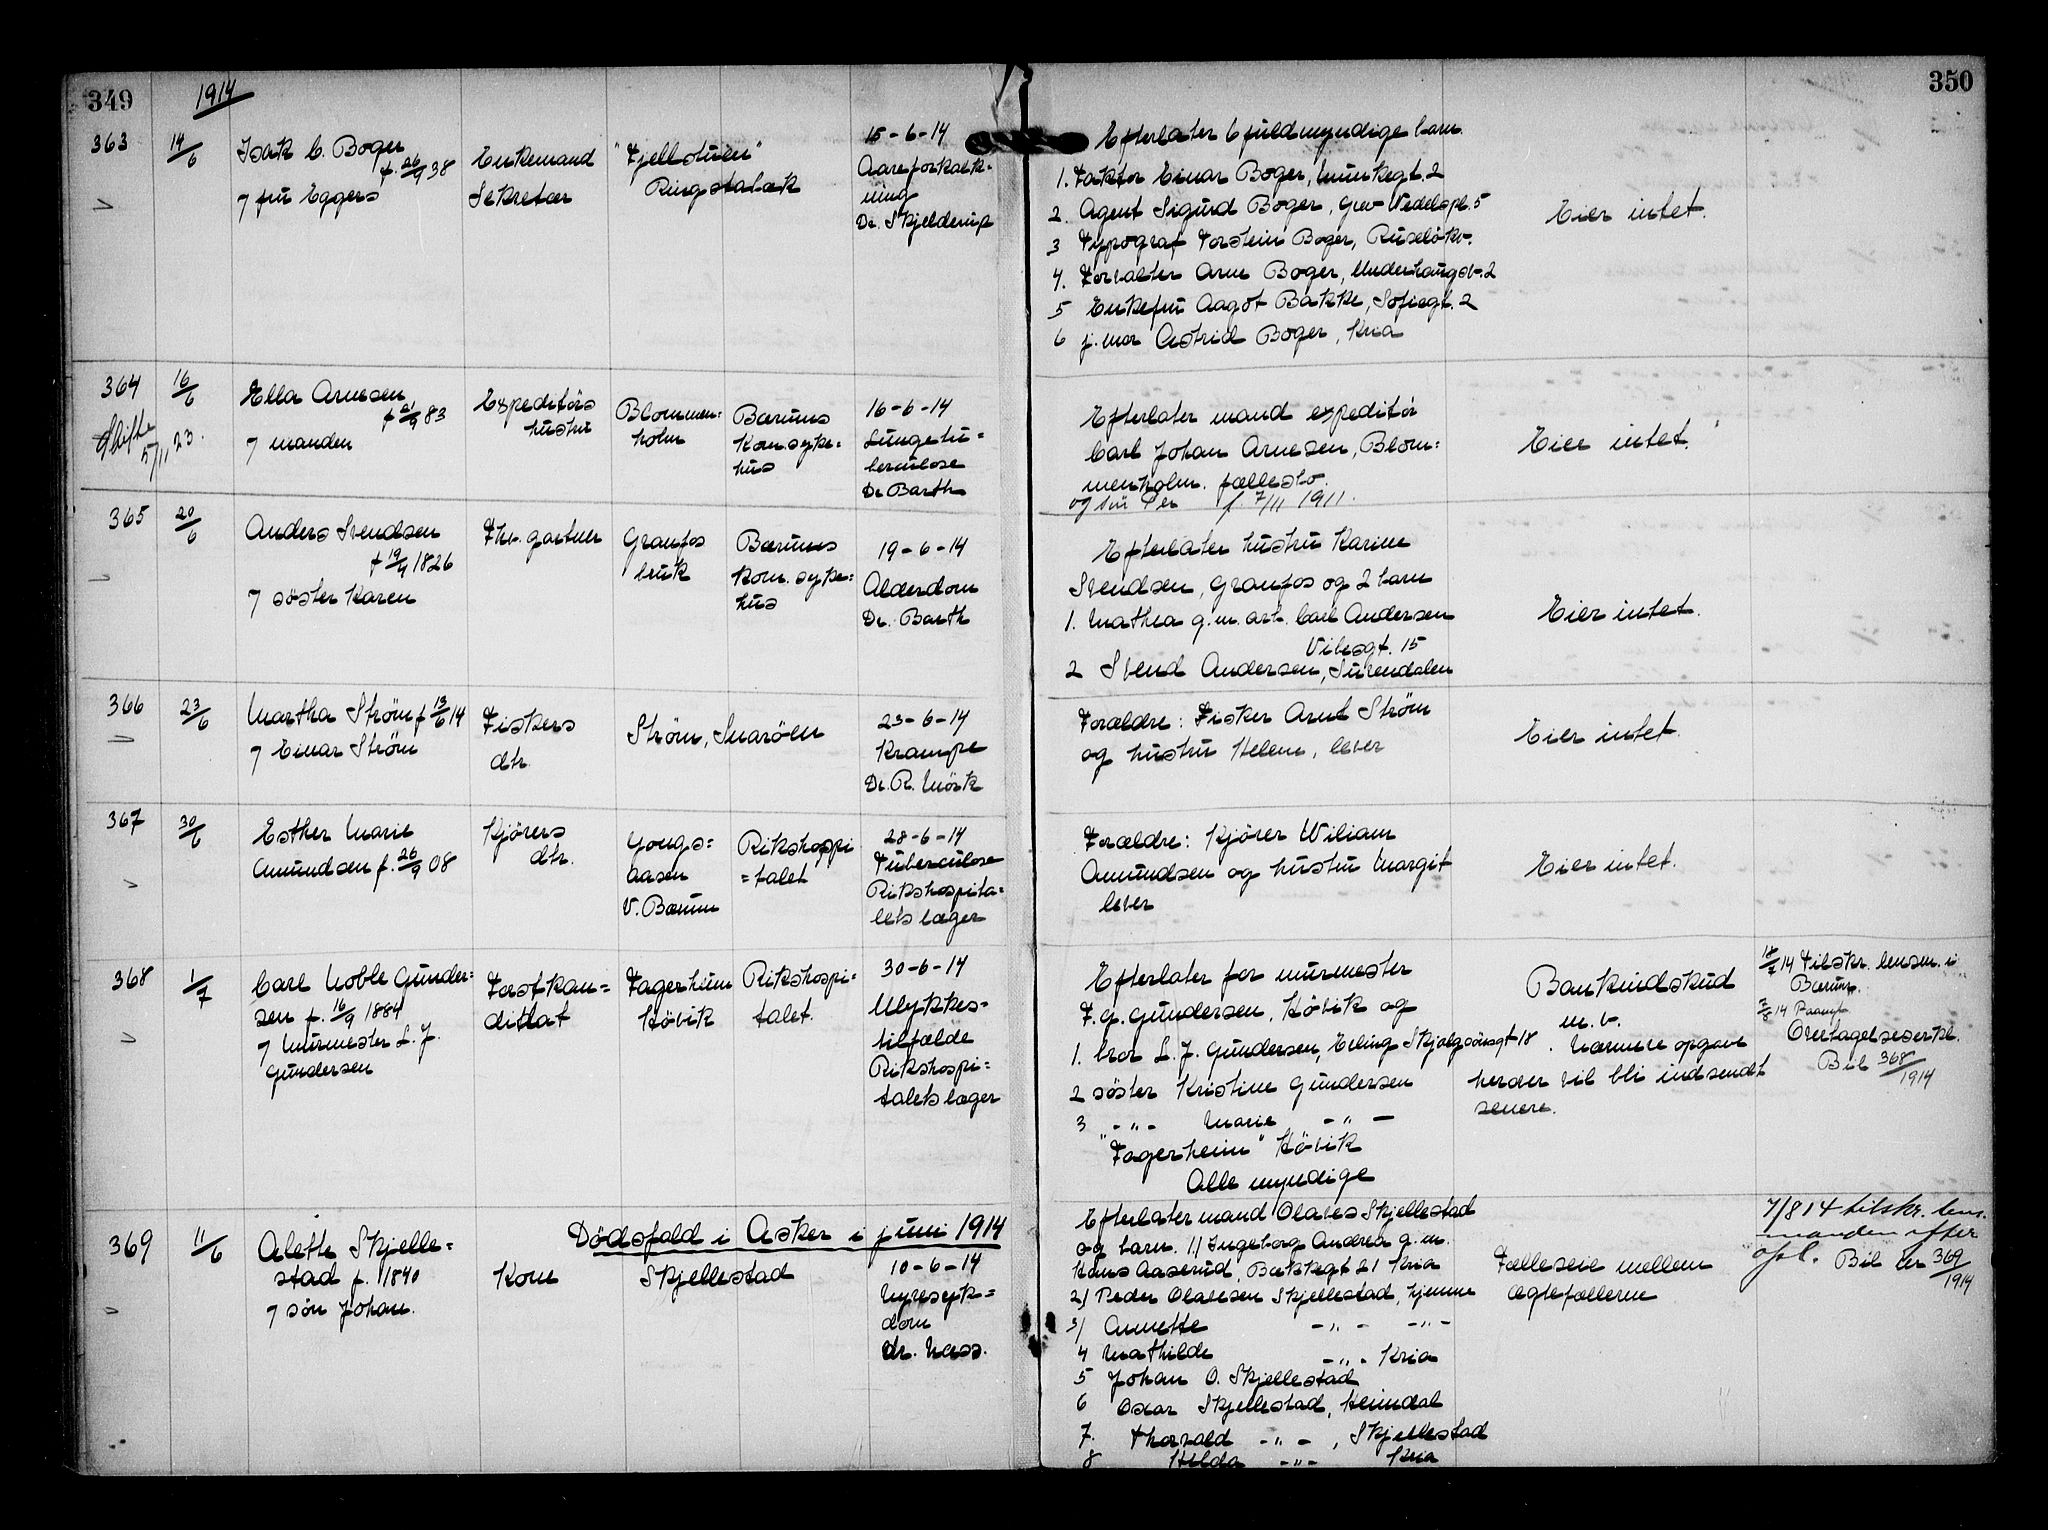 349
1914
350
363
14/6
Isak C. Boger
f. 26/9 38
7 fru Eggers
Enkemand
Sekretær
"Fjellstuen"
Ringstabæk
15-6-14
Aareforkalk-
ning
Dr. Skjelderup
Efterlater 6 fuldmyndige barn.
1. Faktor Einar Boger, Munkegt. 2
2. Agent Sigurd Boger, Grev Wedelspl. 5
3 Typograf Torstein Boger, Ruseløkv.
4. Forvalter Arne Boger, Underhaugsv. 2
5 Enkefru Aagot Bakke, Sofiegt. 2
6 j. mor Astrid Boger, Kria
Eier intet.
364
16/6
Skifte
5/11 23.
Ella Arnesen
f 21/9 83
7 manden
Expeditørs
hustru
Blommen=
holm
Bærums
Kom syke=
hus
16-6-14
Lungetu=
berculose
Dr Barth
Efterlater mand expeditør
Carl Johan Arnesen, Blom=
menholm. fællesbo
og søn Per f. 7/11 1911.
Eier intet.
365
20/6
Anders Svendsen
f 19/4 1826
7 søster Karen
Fhv. gartner
Granfos
bruk
Bærums
kom. syke=
hus
19-6-14
Alderdom
Dr. Barth
Efterlater hustru Karine
Svendsen, Granfos og 2 barn
1. Mathea g.m. arb. Carl Andersen
Vibesgt. 15
2 Svend Andersen, Surendalen
Eier intet.
366
23/6
Martha Strøm f 13/6 14
7 Einar Strøm
Fiskers
dtr.
Strøm, Snarøen
23-6-14
Krampe
Dr. R. Mörk
Forældre: Fisker Arnt Strøm
og hustru Helene, lever
Eier intet.
367
30/6
Esther Marie
Amundsen f. 26/9 08
Kjørers
dtr.
Yongs=
aasen
V. Bærum
Rikshospi
=talet
28-6-14
Tuberculose
Rikshospita=
lets læger
Forældre: Kjører Wiliam
Amundsen og hustru Margit
lever
Eier intet.
368
1/7
Carl Noble Gunder=
sen f. 16/9 1884
7 Murmester L. J.
Gundersen
Forstkan=
didat
Fagerheim
Høvik
Rikshospi=
talet.
30-6-14
Ulykkes-
tilfælde
Rikshospi=
talets læger
Efterlater far murmester
F. G. Gundersen, Høvik og
1. bror L. J. Gundersen, Erling Skjalgsönsgt 18
2 søster Kristine Gundersen
3 - " - Marie - " -
"Fagerheim" Høvik
Alle myndige
Bankindskud
m.v.
Nærmere opgave
herover vil bli indsendt
senere.
14/7 14 Tilskr. lensm. i
Bærum.
7/8 14
Overtagelseserkl.
Bil 368/1914
Dödsfald i Asker i juni 1914
369
11/6
Alette Skjelle=
stad f. 1840
7 søn Johan.
Kone
Skjellestad
10-6-14
Nyresyk=
dom
dr. Næss.
Efterlater mand Olaves Skjellestad
og barn. 1/ Ingeborg Andrea g. m.
Hans Aaserud, Bækkegt 21 Kria
2/ Peder Olavesen Skjellestad, hjemme
3/ Annette - " - - " -
4 Mathilde - " - Kria
5 Johan O. Skjellestad
6 Oscar Skjellestad, Heimdal
7. Thorvald - " - , Skjellestad
8 Hilda - " - Kria
Fælleseie mellem
ægtefællerne
7/8 14 tilskr. lens.
manden efter
opl. Bil nr 369/1914